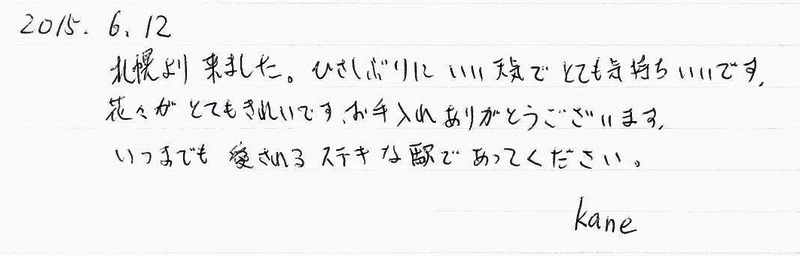 2015. 6. 12
札幌より来ました。ひさしぶりにいい天気でとても気持ちいいです。
花々がとてもきれいです。お手入れありがとうございます。
いつまでも愛されるステキな駅であってください。
kane